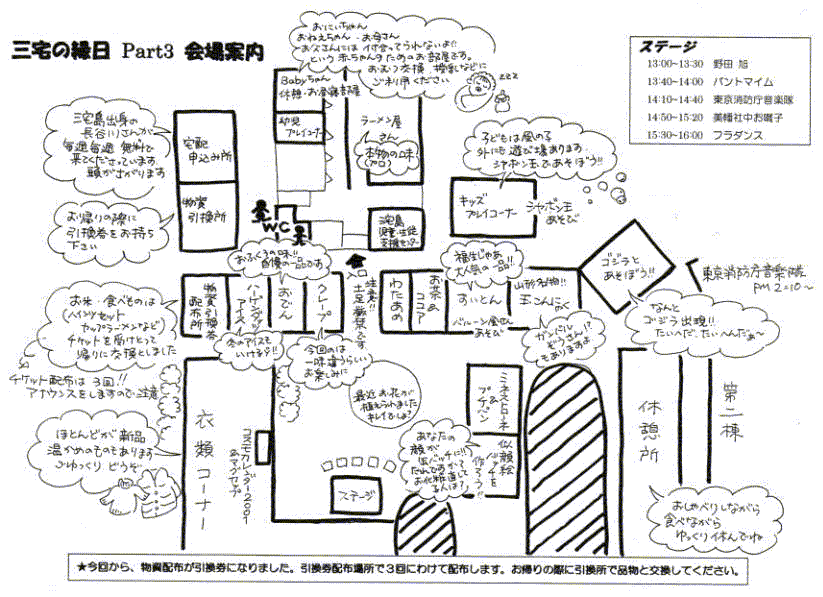 三宅の縁日 Part3 会場案内
おにいちゃん
おねえちゃん・お母さん
お父さんには付合ってられないよ!!
という赤ちゃんのためのお部屋です。
おむつ交換、授乳などに
ご利用ください
ステージ
13:00~13:30 野田 旭
13:40~14:00 パントマイム
14:10~14:40 東京消防庁音楽隊
14:50~15:20 美幡社中お囃子
15:30~16:00 フラダンス
Babyちゃん
休憩・お昼寝部屋
幼児
プレイコーナー
ラーメン屋
さん
本物の味!
(プロ)
zzz
三宅島出身の
長谷川さんが
毎週毎週 無料で
来てくださっています。
頭がさがります
宅配
申込み所
物資
引換所
お帰りの際に
引換券をお持ち
下さい
WC
三宅島
児童・生徒
支援センター
子どもは風の子
外にも遊び場あります
シャボン玉であそぼう!!
キッズ
プレイコーナー
シャボン玉
あそび
おふくろの味!!
自慢の一品です
福生じゃあ
大人気の一品!!
ゴジラと
あそぼう!!
東京消防庁音楽隊
PM 2:10~
お米・食べものは
ヘインツセット
カップラーメンなど
チケットを受けとって
帰りに交換しました
物資引換券
配布所
ハーゲンダッツ
アイス
おでん
クレープ
入口
注意!!
土足厳禁です
わたあめ
お茶&
ココア
すいとん
バルーン屋さん
あそび
山形名物!!
玉こんにゃく
冬のアイスも
いけるゾ!!
今回のは
一味違うらしい
お楽しみに
がンバレ
ぞうさん!?
もありますよ
なんと
ゴジラ出現!!
たいへだ、たいへんだぁ~
チケット配布は3回!!
アナウンスをしますので注意
最近お花が
植えられました
キレイでしょ?
ミネストローネ
&
プチパン
似顔絵
バッチを
作ろう!!
あなたの
顔が
缶バッチに!!
お化粧直して
ほとんどが新品
温かめのものもあります
ごゆっくりどうぞ
衣類コーナー
コスモカレンダー2001
&マグカップ
ステージ
休憩所
第二棟
おしゃべりしながら
食べながら
ゆっくり休んでね
★今回から、物資配布が引換券になりました。引換券配布場所で3回にわけて配布します。お帰りの際に引換所で品物と交換してください。